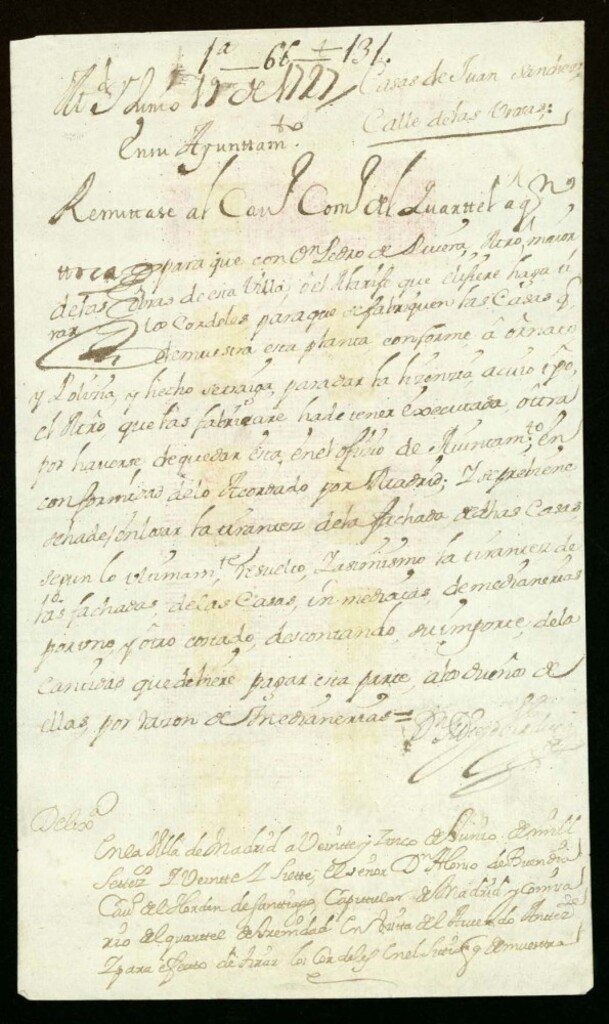 1ª — 66 + 131.
Md. y Junio 19 de 1727
Casas de Juan Sanchez,
Calle de las Urosas;
En su Ayunttam.to
Remittase al Cavº Comº del Quarttel aqº
ttoca para que con Dn Pedro de Rivera, Mtro, maior
de las obras de esta Villa, ô el Alarife que elijiere haga ti
rar los Cordeles para que se fabriquen las Casas q
demuestra esta planta conforme â ôrnato
y Polizia, y hecho se traiga, para dar la lizenzia, a cuio tpo,
el Mtro que las fabricare ha de tener Executada, ôttra
por haverse de quedar esta, en el ofizio de Aiuntam.to en
conformidad de lo Acordado por Madrid; Y se prebiene
se ha de enlosar la tirantez de la fachada de dhas Casas,
segun lo ultimam.te resuelto, Y asimismo la tirantez de
las fachadas, de las Casas, inmediatas, de medianerias
por uno, y ôtro costado, descontando, su importe, de la
Cantidad que debiere pagar esta parte, a los dueños de
ellas, por razon de Medianerias =
Delixª
En la Villa de Madrid a Veintte y Zinco de Junio de mill
Settezos Y Veintte Y Siette, el señor Dn Alonso de Buendia
Cavº del Horden de santtiago, Capittular de Madrid y Comisa
rio del quarttel de
En Vista del Acuerdo Antezte
Y para efecto de tirar los Cordeles En el Sitio q demuestra